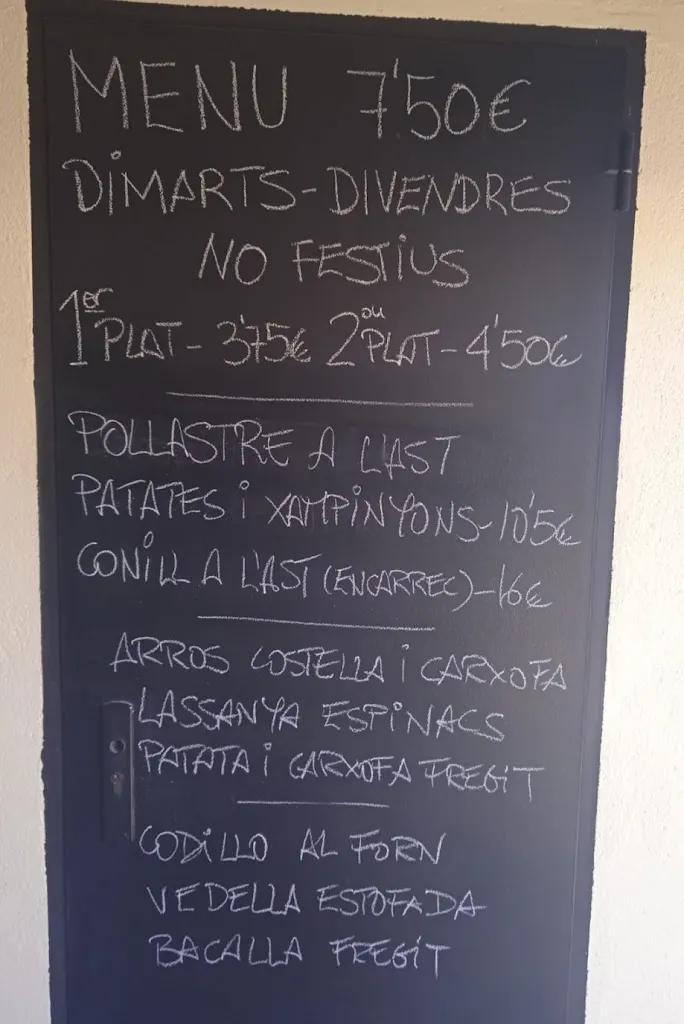 MENU 7'50€
DIMARTS-DIVENDRES
NO FESTIUS
1er PLAT - 3'75€ 2ou PLAT - 4'50€
POLLASTRE A L'AST
PATATES i XAMPINYONS - 10'5€
CONILL A L'AST (ENCARREC) - 16€
ARROS COSTELLA i CARXOFA
LASSANYA ESPINACS
PATATA i CARXOFA FREGIT
CODILLO AL FORN
VEDELLA ESTOFADA
BACALLA FREGIT